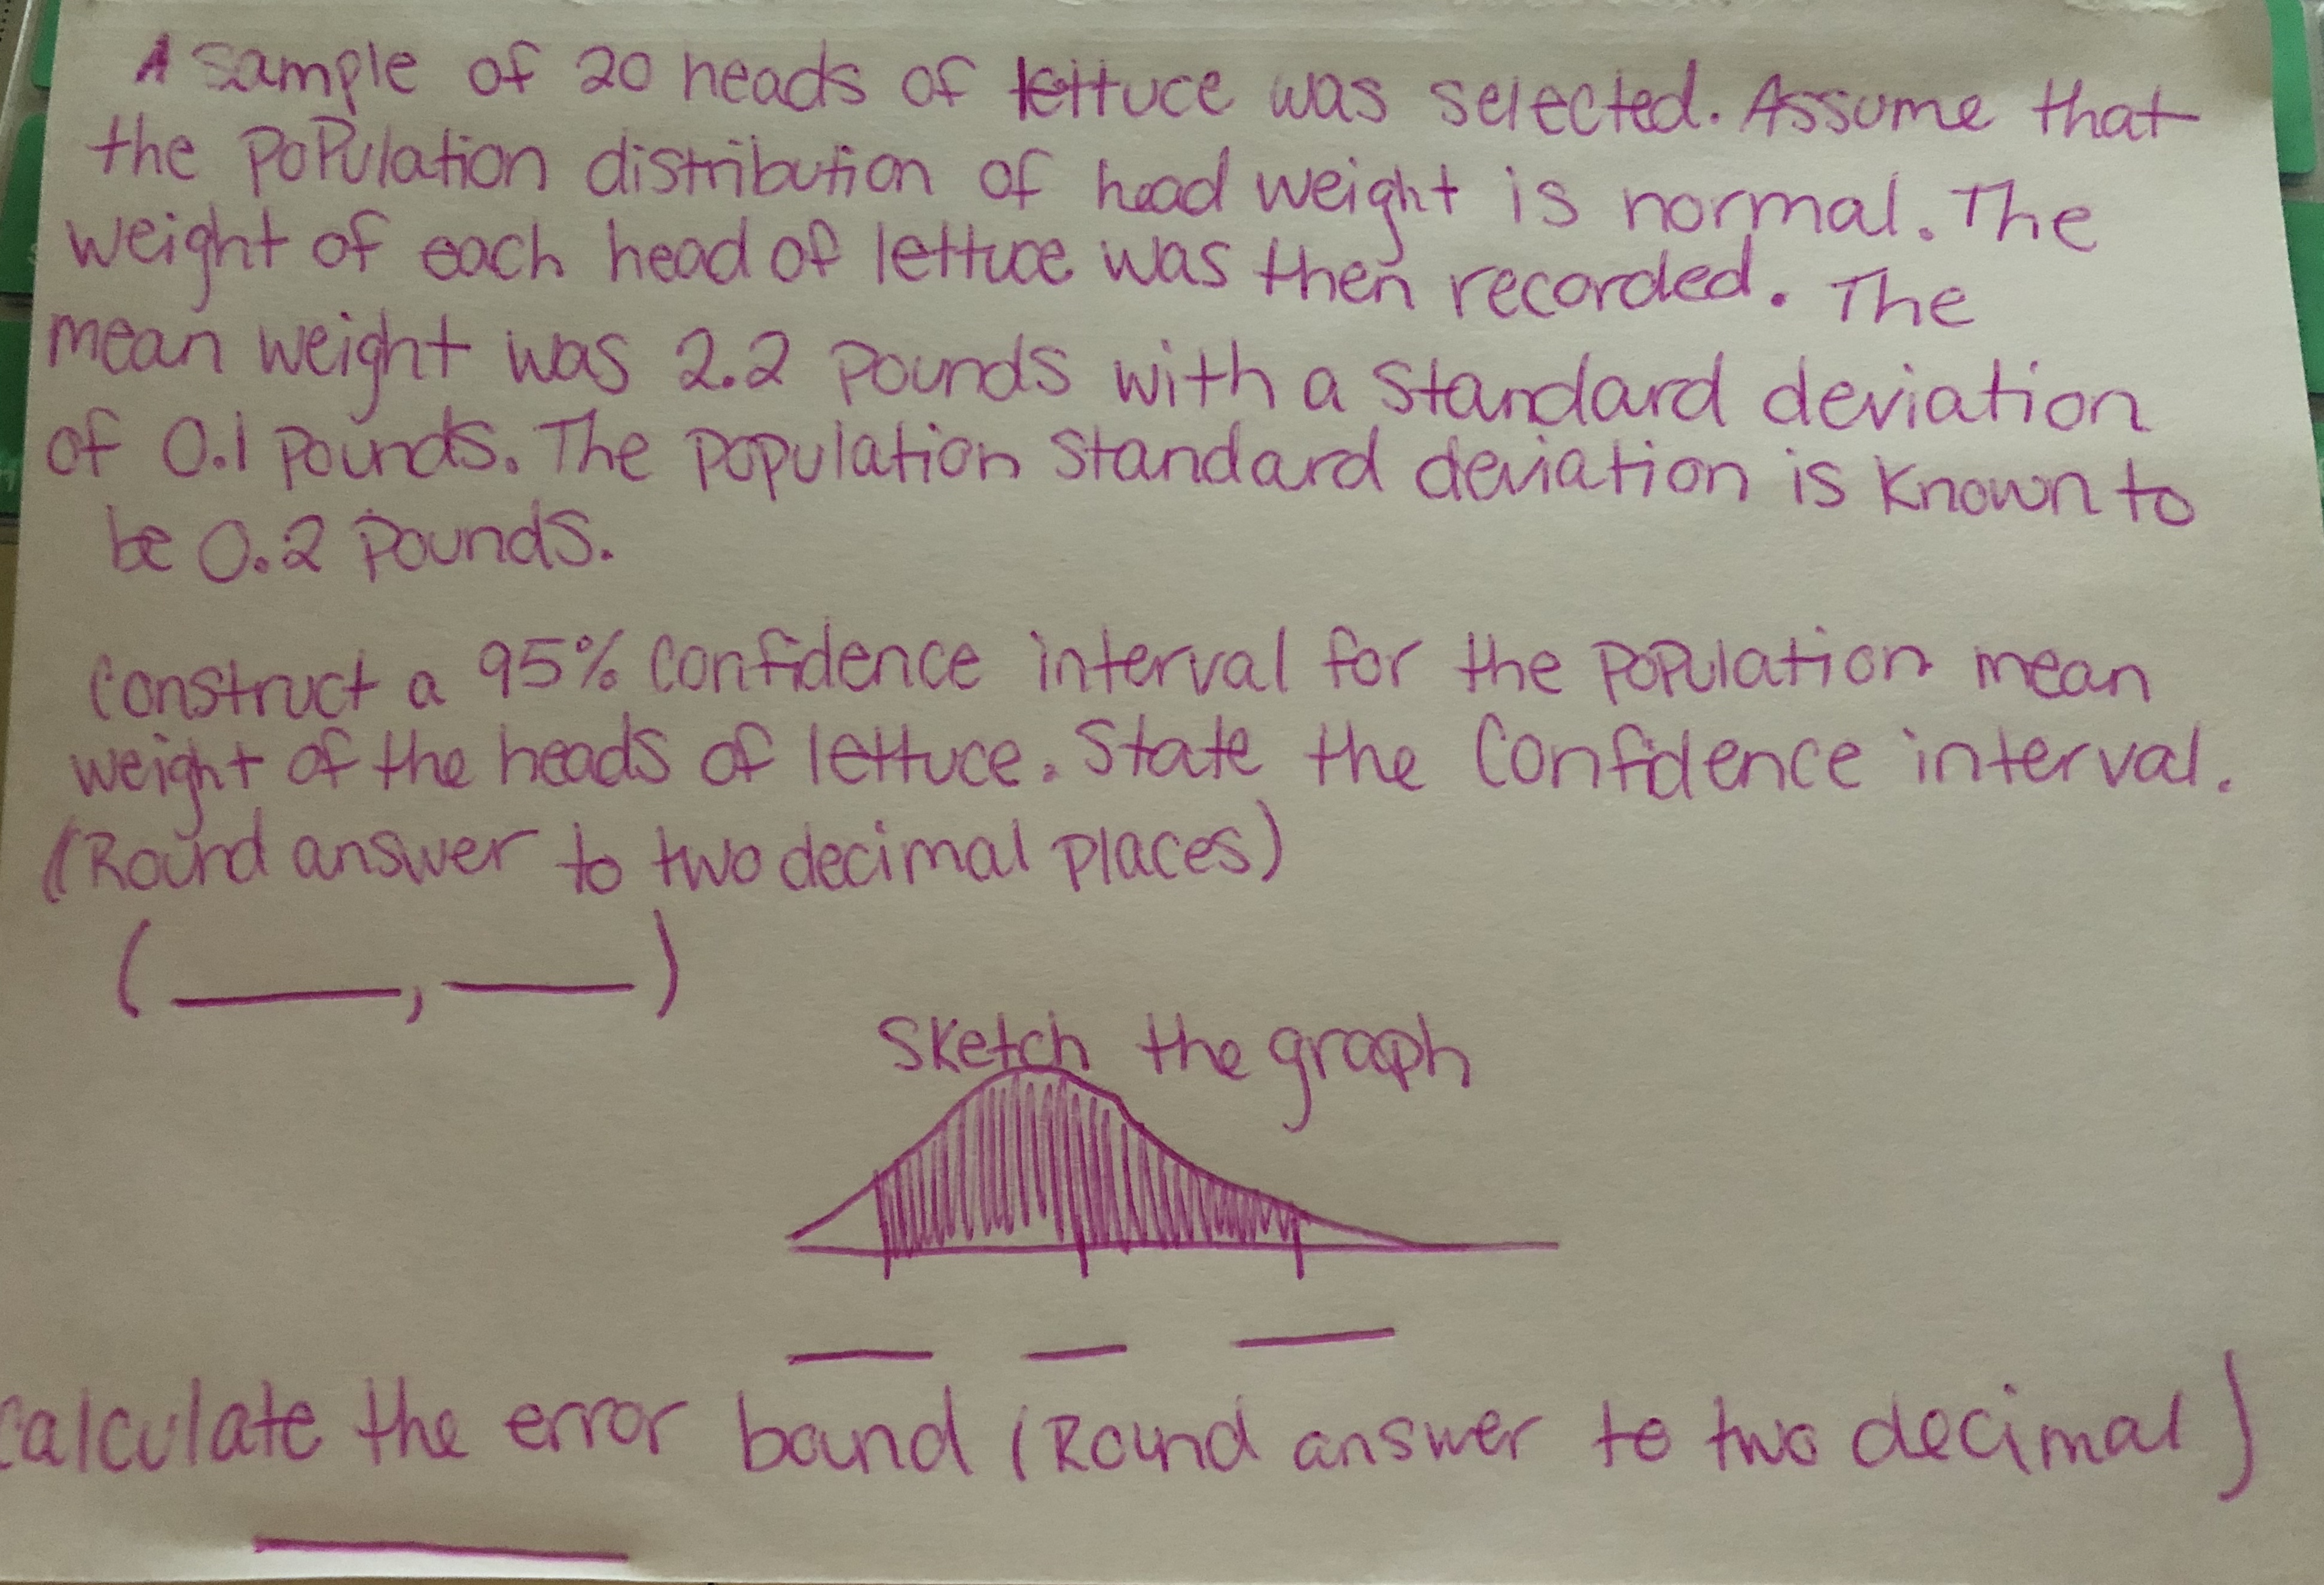 A sample of 20 heads of lettuce was selected. Assume that
the population distribution of head weight is normal. The
weight of each head of lettuce was then recorded. The
mean weight was 2.2 pounds with a standard deviation
of 0.1 pounds. The population standard deviation is known to
be 0.2 pounds.
Construct a 95% confidence interval for the population mean
weight of the heads of lettuce. State the confidence interval.
(Round answer to two decimal places)
(____, ____)
Sketch the graph
____ ____ ____
Calculate the error bound (Round answer to two decimal)
____